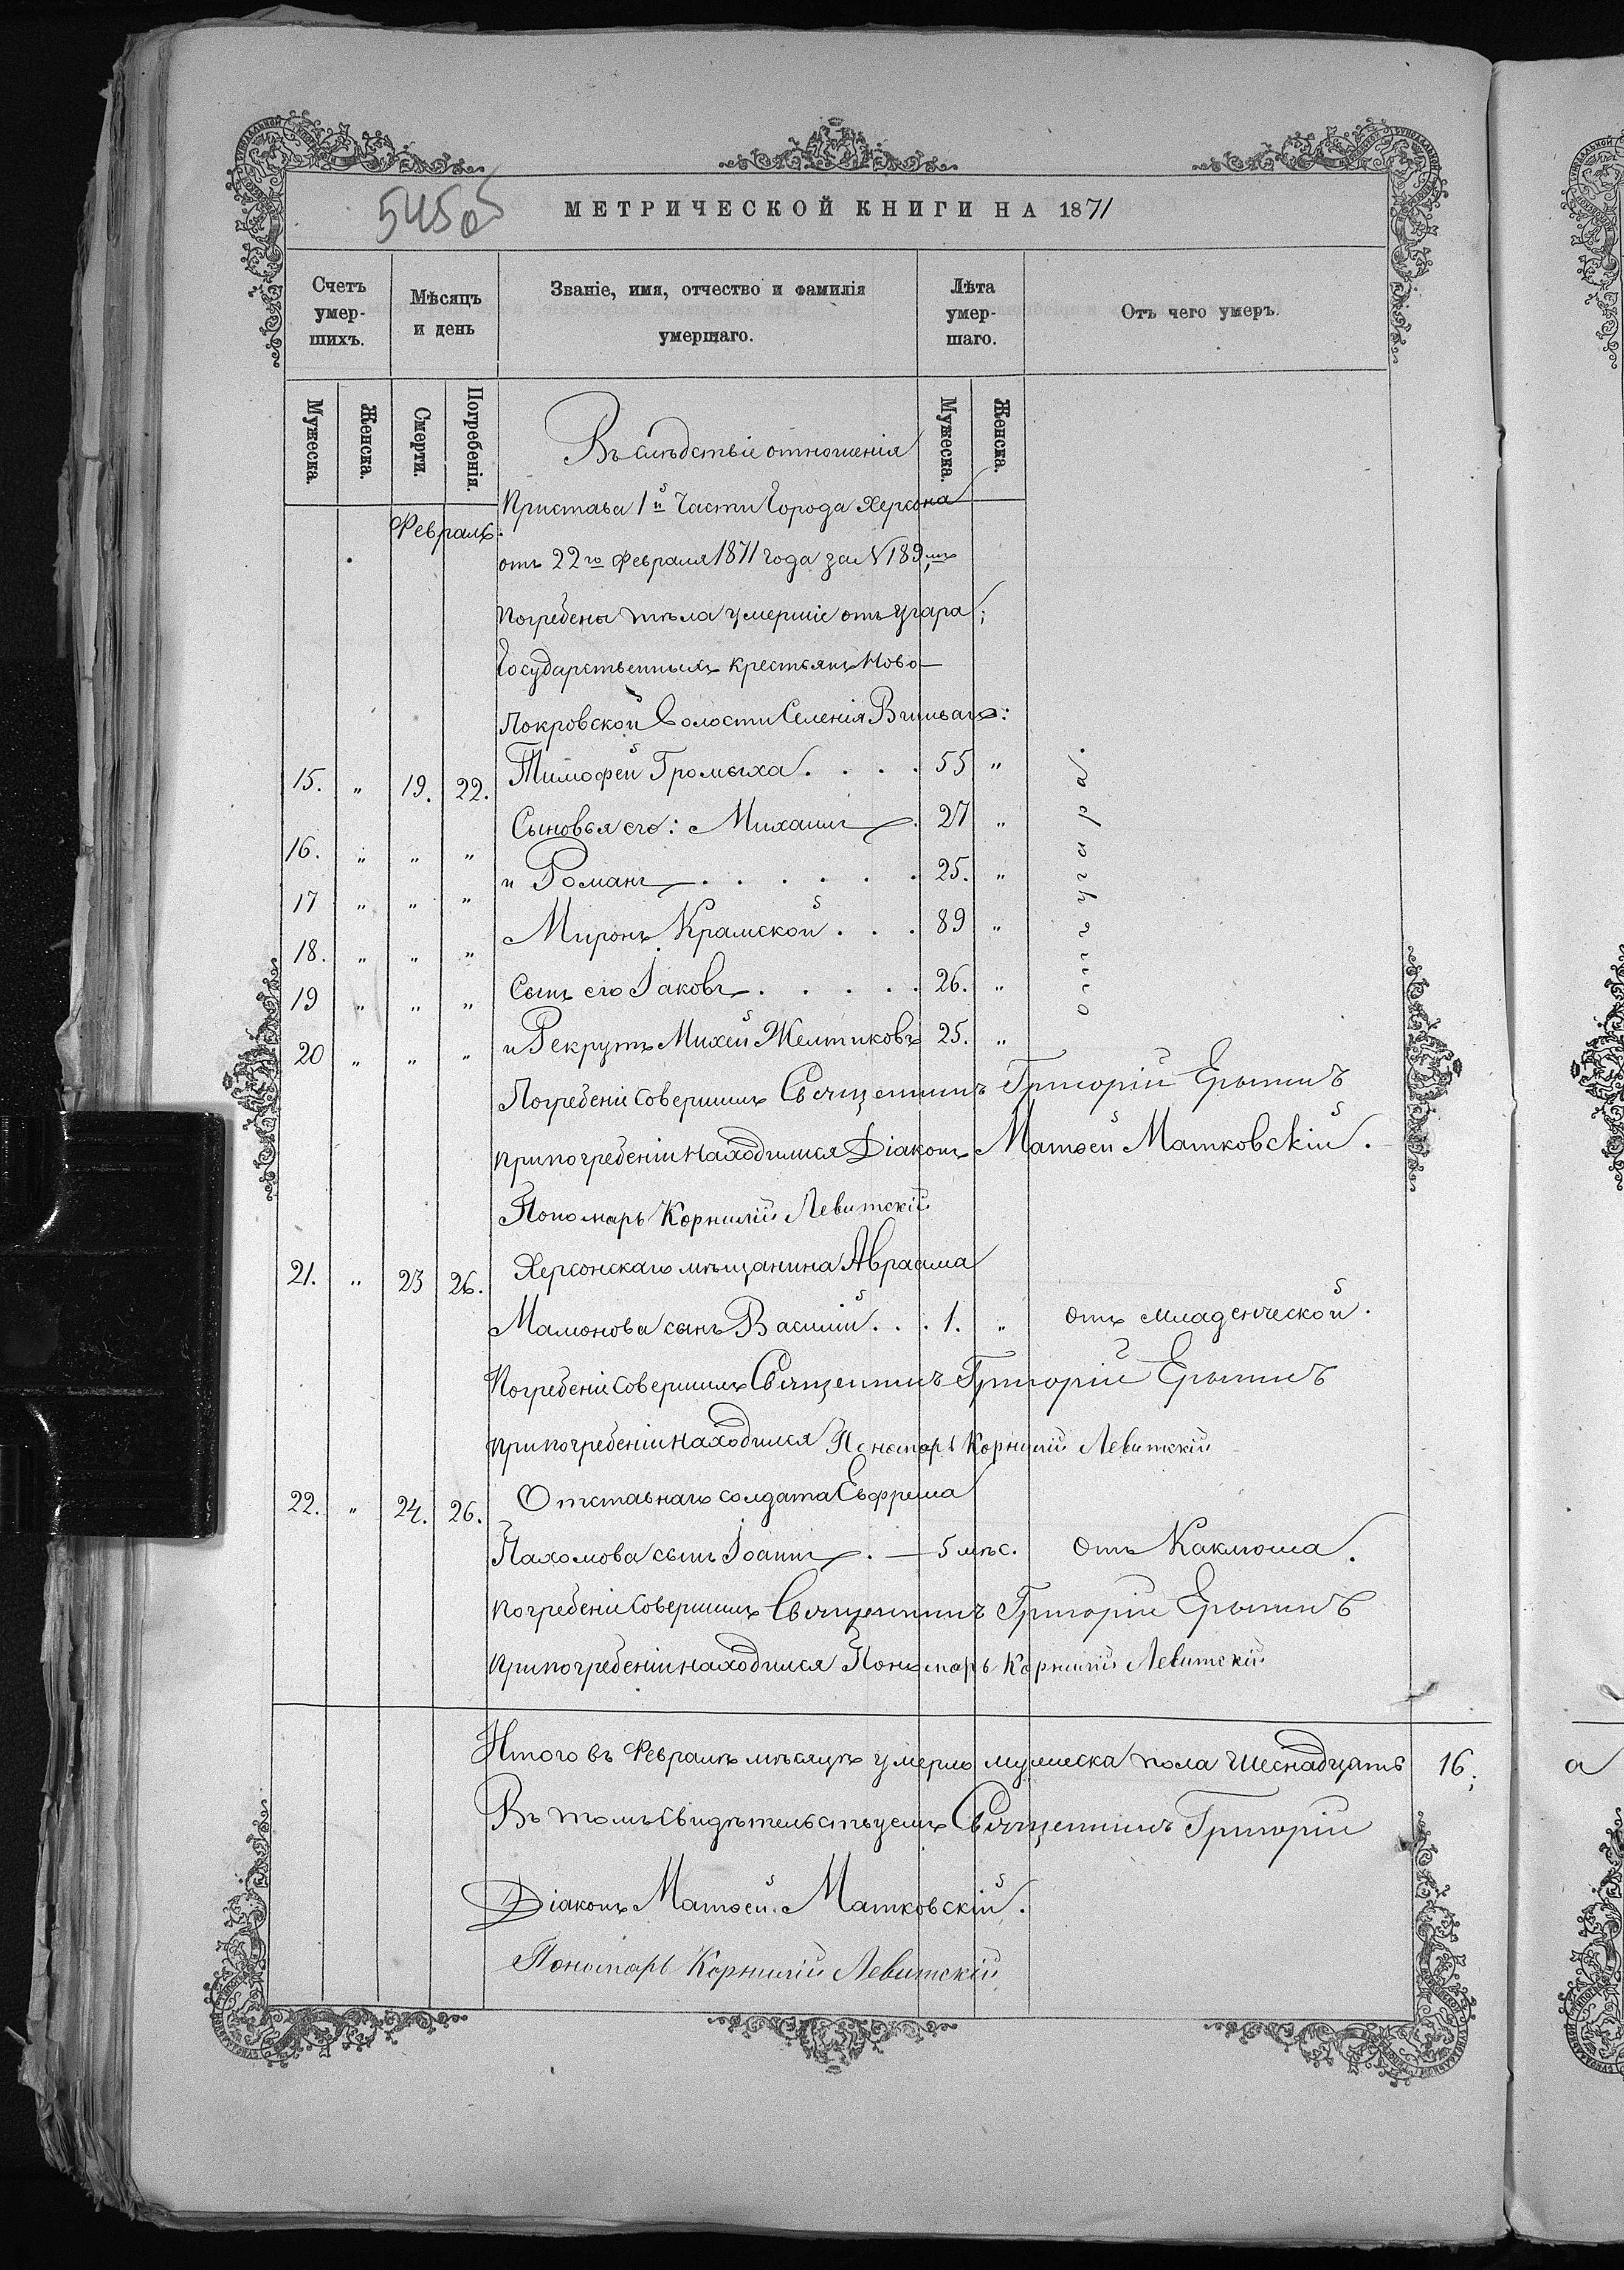 545об
МЕТРИЧЕСКОЙ КНИГИ НА 1871
Счетъ умер-шихъ.
Мѣсяцъ и день
Званіе, имя, отчество и фамилія умершаго.
Лѣта умер-шаго.
Отъ чего умеръ.
Мужеска. Женска. Смерти. Погребенія. Мужеска. Женска.
Въ слѣдствіе отношенія
Пристава 1й Части Города Херсона
Февраль.
отъ 22го Февраля 1871 года за N 189мъ
Погребены тѣла умершіе отъ угара;
Государственныхъ крестьянъ Ново-
Покровской Волости Селенія
15. " 19. 22. Тимофей Громыха. . . . 55 "
16. " " " Сыновья его: Михаилъ . 27 "
17 " " " и Романъ . . . . . . 25. "
18. " " " Миронъ Крамской . . . 89 "
19 " " " Сынъ его Іаковъ . . . . . 26. "
20 " " " и Рекрутъ Михей Желтиковъ 25. "
отъ угара.
Погребеніе совершилъ Священникъ Григорій
при погребеніи находилися Діаконъ Матѳей Матковскій.
Пономарь Корнилій Левитскій
21. " 23 26. Херсонскаго мѣщанина Авраама
Мамонова сынъ Василій. . . 1. " отъ младенческой.
Погребеніе совершилъ Священникъ Григорій
при погребеніи находился Пономарь Корнилій Левитскій
22. " 24. 26. Отставнаго солдата Ефрема
Пахомова сынъ Іоаннъ . — 5 мѣс. отъ Каклюша.
Погребеніе совершилъ Священникъ Григорій
при погребеніи находился Пономарь Корнилій Левитскій
Итого въ Февралѣ мѣсяцѣ умерло мужеска пола Шеснадцать 16;
Въ томъ свидѣтельствуемъ Священникъ Григорій
Діаконъ Матѳей Матковскій.
Пономарь Корнилій Левитскій